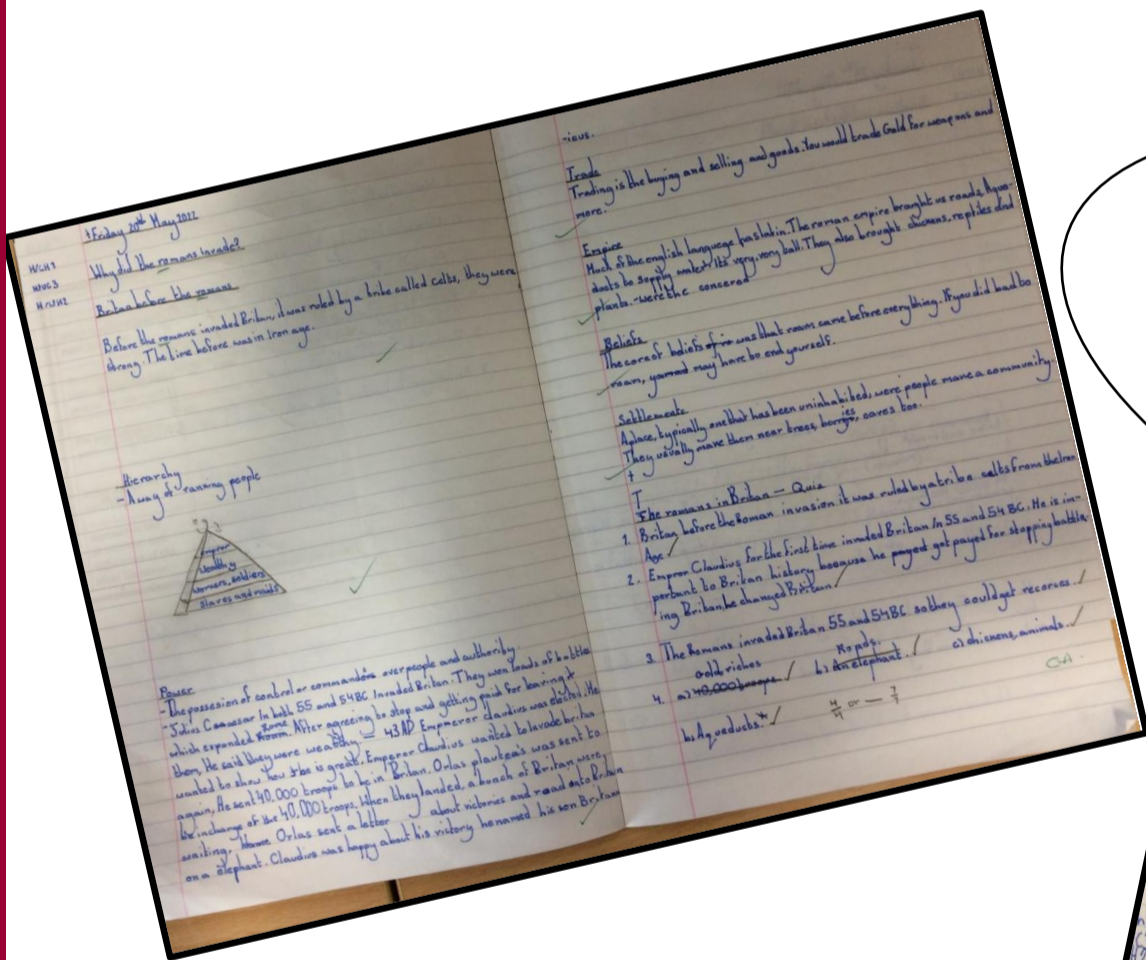 Friday 20th May 2022
Why did the romans invade?
Britan before the romans
Before the romans invaded Britan, it was ruled by a tribe called celts, they were
strong. The time before was in Iron age.
Hierarchy
- A way of ranking people
Empror
wealthy
workers, soldiers
slaves and maids
Power
- The possesion of control or command over people and authority
- Julius Caeser In both 55 and 54 BC Invaded Britan. They won loads of battle
which expanded Rome. After agreeing to stop and getting paid for leaving
them, He said they were wealthy. - 43 AD Emperer claudius was elected. He
wanted to show how he is great. Emperor Claudius wanted to invade britan
again, He sent 40,000 troops to be in Britan. Orlas plauteas was sent to
be in charge of the 40,000 troops. When they landed, a bunch of Britan were
waiting. Orlas sent a letter about victories and road onto Britain
on a elephant. Claudius was happy about his victory he named his son Britan
-icus.
Trade
Trading is the buying and selling and goods. You would trade Gold for weapons and
more.
Empire
Much of the english language has latin. The roman empire brought us roads, Aquo-
ducts to supply water. Its very, very tall. They also brought chickens, reptiles and
plants. - were the concered
Beliefs
The core of beliefs was that roam came before everything. If you did bad to
roam, you may have to end yourself.
Settlements
A place, typically one that has been uninhabited, were people make a community.
They usually make them near trees, caves too.
The romans in Britan - Quiz
1. Britan before the Roman invasion it was ruled by a tribe celts from the Iron
Age
2. Empror Claudius for the first time invaded Britan in 55 and 54 BC. He is im-
portant to Britan history because he payed got payed for stopping battle-
ing Britan, he changed Britan
3. The Romans invaded Britan 55 and 54 BC so they could get recorses.
4. a) gold, riches 40,000 troops b) Roads. An elephant. c) chickens, animals.
b) Aqueducts*